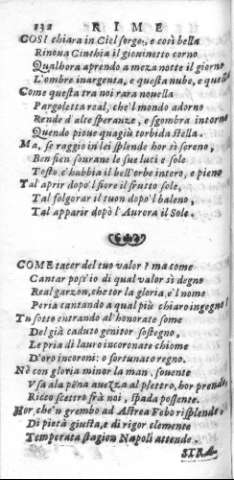 132 RIME
COSI chiara in Ciel sorge, e così bella
Rinoua Cinthia il giouinetto corno
Qualhora aprendo a meza notte il giorno
L'ombre inargenta, e questa nube, e quella
Come questa tra noi rara nouella
Pargoletta real, che'l mondo adorno
Rende d'alte speranze, e sgombra intorno
Quendo pioue quagiù torbida stella.
Ma, se raggio in lei splende hor sì sereno,
Ben fien sourane le sue luci e sole
Tosto c'habbia il bell'orbe intero, e pieno
Tal aprir dopo'l fiore il frutto sole,
Tal folgorar il tuon dopo'l baleno,
Tal apparir dopò l'Aurora il Sole.
COME tacer del tuo valor? ma come
Cantar poss'io di qual valor sì degno
Real garzon, che tor la gloria, e'l nome
Poria cantando a qual più chiaro ingegno?
Tu sotto entrando al'honorate some
Del già caduto genitor sostegno,
Le pria di lauro incoronate chiome
D'oro incoroni: o fortunato regno.
Nè con gloria minor la man, souente
Vsa ala penna auezza al plettro, hor prende
Ricco scettro frà noi, spada possente.
Hor, che'n grembo ad Astrea Febo risplende,
Di pietà giusta, e di rigor clemento
Temperata stagion Napoli attende.